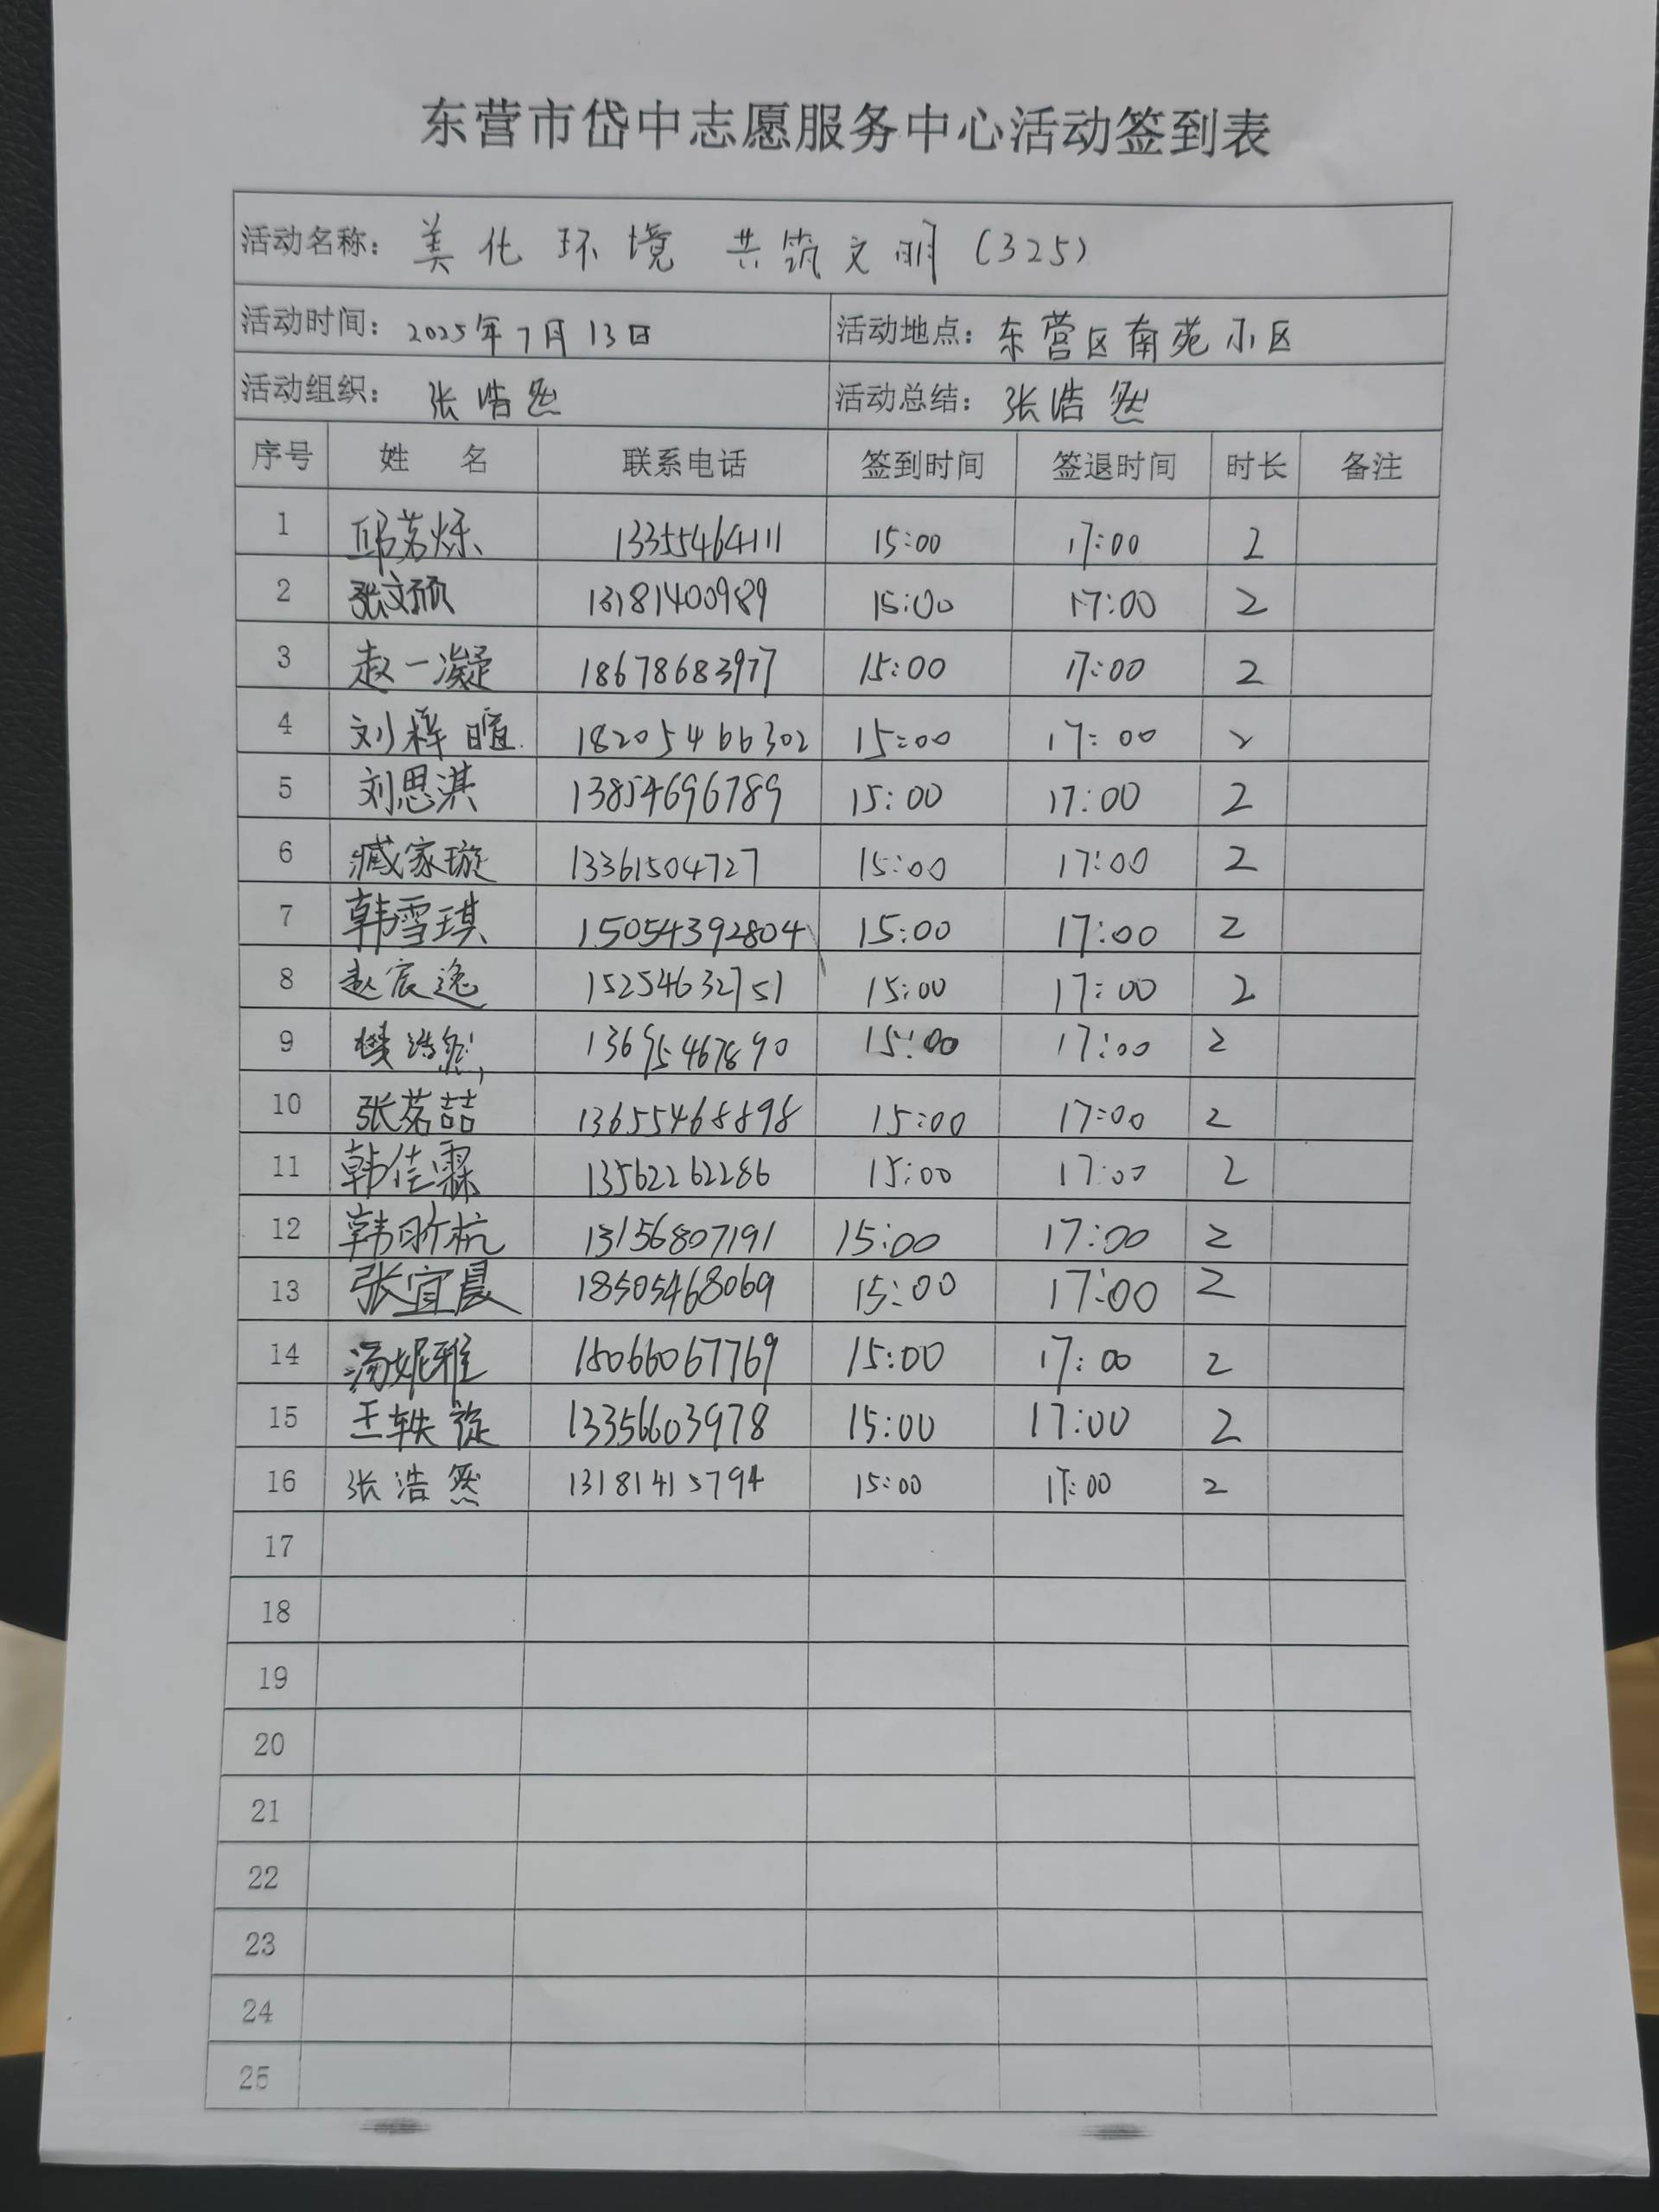 东营市岱中志愿服务中心活动签到表
活动名称： 美化环境 共筑文明（325）
活动时间： 2025年7月13日 活动地点： 东营区南苑小区
活动组织： 张浩然 活动总结： 张浩然
序号 姓 名 联系电话 签到时间 签退时间 时长 备注
1 邱茗烁 13355464111 15:00 17:00 2
2 张文硕 13181400989 15:00 17:00 2
3 赵一凝 18678683977 15:00 17:00 2
4 刘梓暄 18205466302 15:00 17:00 2
5 刘思淇 13854696789 15:00 17:00 2
6 臧家璇 13361504727 15:00 17:00 2
7 韩雪琪 15054392804 15:00 17:00 2
8 赵宸逸 15254632751 15:00 17:00 2
9 樊浩然 13695467890 15:00 17:00 2
10 张茗喆 13655468898 15:00 17:00 2
11 韩佳霖 13562262286 15:00 17:00 2
12 韩昕杭 13156807191 15:00 17:00 2
13 张宜晨 18505468069 15:00 17:00 2
14 汤妮雅 15066067769 15:00 17:00 2
15 王轶 13356603978 15:00 17:00 2
16 张浩然 13181415794 15:00 17:00 2
17
18
19
20
21
22
23
24
25